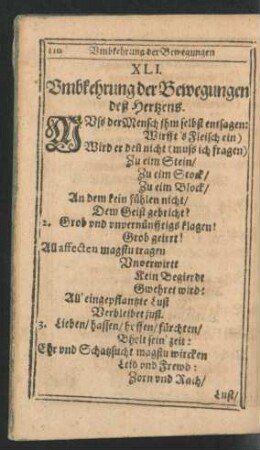 110 Vmbkehrung der Bewegungen
XLI.
Vmbkehrung der Bewegungen
deß Hertzens.
MUß der Mensch jhm selbst entsagen:
Wirfft's Fleisch ein)
Wird er deñ nicht (muss ich fragen)
Zu eim Stein/
Zu eim Stock/
Zu eim Block/
An dem kein fühlen nicht/
Dem Geist gebricht?
2. Grob vnd vnvernünfftigs klagen!
Grob geirrt!
All affecten magstu tragen
Vnverwirrt
Kein Begierdt
Gwehret wird:
All' eingepflantzte Lust
Verbleibet just.
3. Lieben/ hassen/ hoffen/ fürchten/
Bhelt sein' zeit:
Ehr vnd Schatzsucht magstu wircken
Leid vnd Frewd:
Zorn vnd Rach/
Lust/